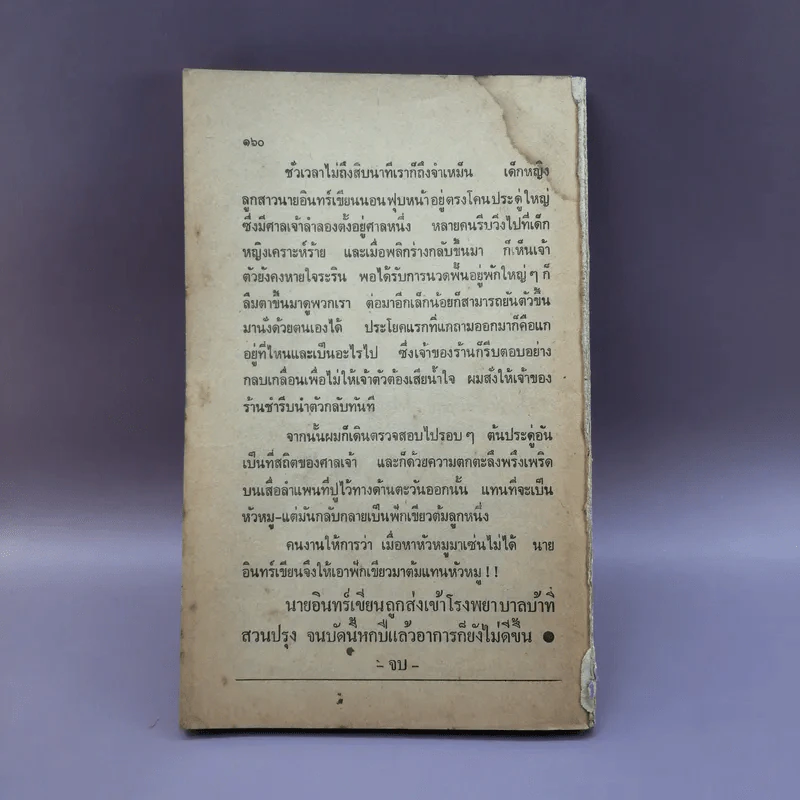 ๑๖๐
ชั่วเวลาไม่ถึงสิบนาทีเราก็ถึงจำเหม็น เด็กหญิง
ลูกสาวนายอินทร์เขียนนอนฟุบหน้าอยู่ตรงโคนประดู่ใหญ่
ซึ่งมีศาลเจ้าลำลองตั้งอยู่ศาลหนึ่ง หลายคนรีบวิ่งไปที่เด็ก
หญิงเคราะห์ร้าย และเมื่อพลิกร่างกลับขึ้นมา ก็เห็นเจ้า
ตัวยังคงหายใจระริน พอได้รับการนวดฟั้นอยู่พักใหญ่ ๆ ก็
ลืมตาขึ้นมาดูพวกเรา ต่อมาอีกเล็กน้อยก็สามารถยันตัวขึ้น
มานั่งด้วยตนเองได้ ประโยคแรกที่แกถามออกมาก็คือแก
อยู่ที่ไหนและเป็นอะไรไป ซึ่งเจ้าของร้านก็รีบตอบอย่าง
กลบเกลื่อนเพื่อไม่ให้เจ้าตัวต้องเสียน้ำใจ ผมสั่งให้เจ้าของ
ร้านชำรีบนำตัวกลับทันที
จากนั้นผมก็เดินตรวจสอบไปรอบ ๆ ต้นประดู่อัน
เป็นที่สถิตของศาลเจ้า และก็ด้วยความตกตะลึงพรึงเพริด
บนเสื่อลำแพนที่ปูไว้ทางด้านตะวันออกนั้น แทนที่จะเป็น
หัวหมู-แต่มันกลับกลายเป็นฟักเขียวต้มลูกหนึ่ง
คนงานให้การว่า เมื่อหาหัวหมูมาเซ่นไม่ได้ นาย
อินทร์เขียนจึงให้เอาฟักเขียวมาต้มแทนหัวหมู!!
นายอินทร์เขียนถูกส่งเข้าโรงพยาบาลบ้าที่
สวนปรุง จนบัดนี้หกปีแล้วอาการก็ยังไม่ดีขึ้น ●
- จบ -